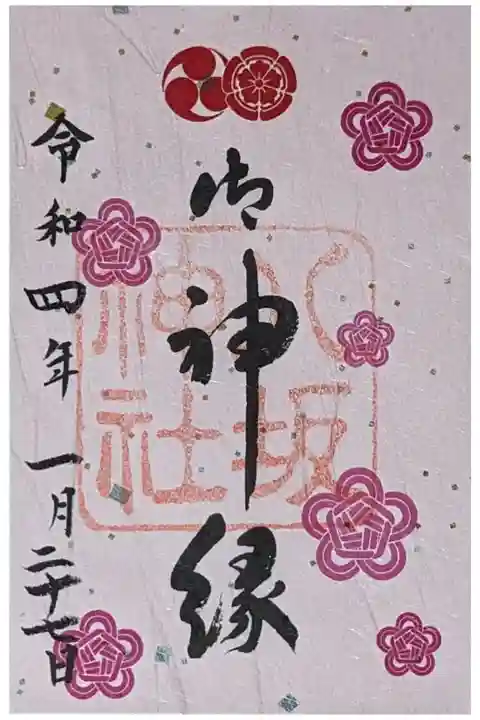 八坂
神社
御神縁
令和四年一月二十七日